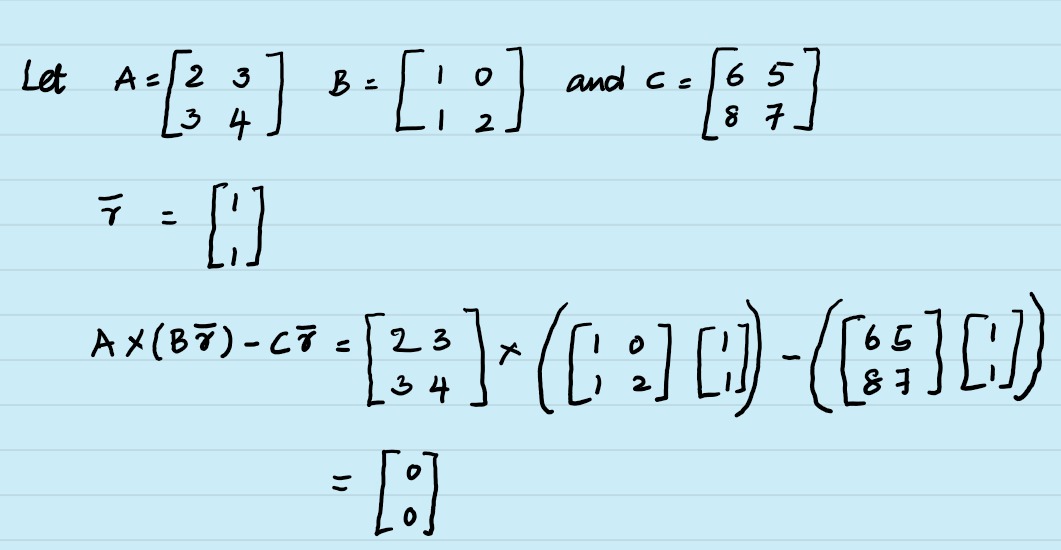 Let A = [2 3; 3 4] B = [1 0; 1 2] and C = [6 5; 8 7]
r̄ = [1; 1]
A × (B r̄) - C r̄ = [2 3; 3 4] × ([1 0; 1 2] [1; 1]) - ([6 5; 8 7] [1; 1])
= [0; 0]